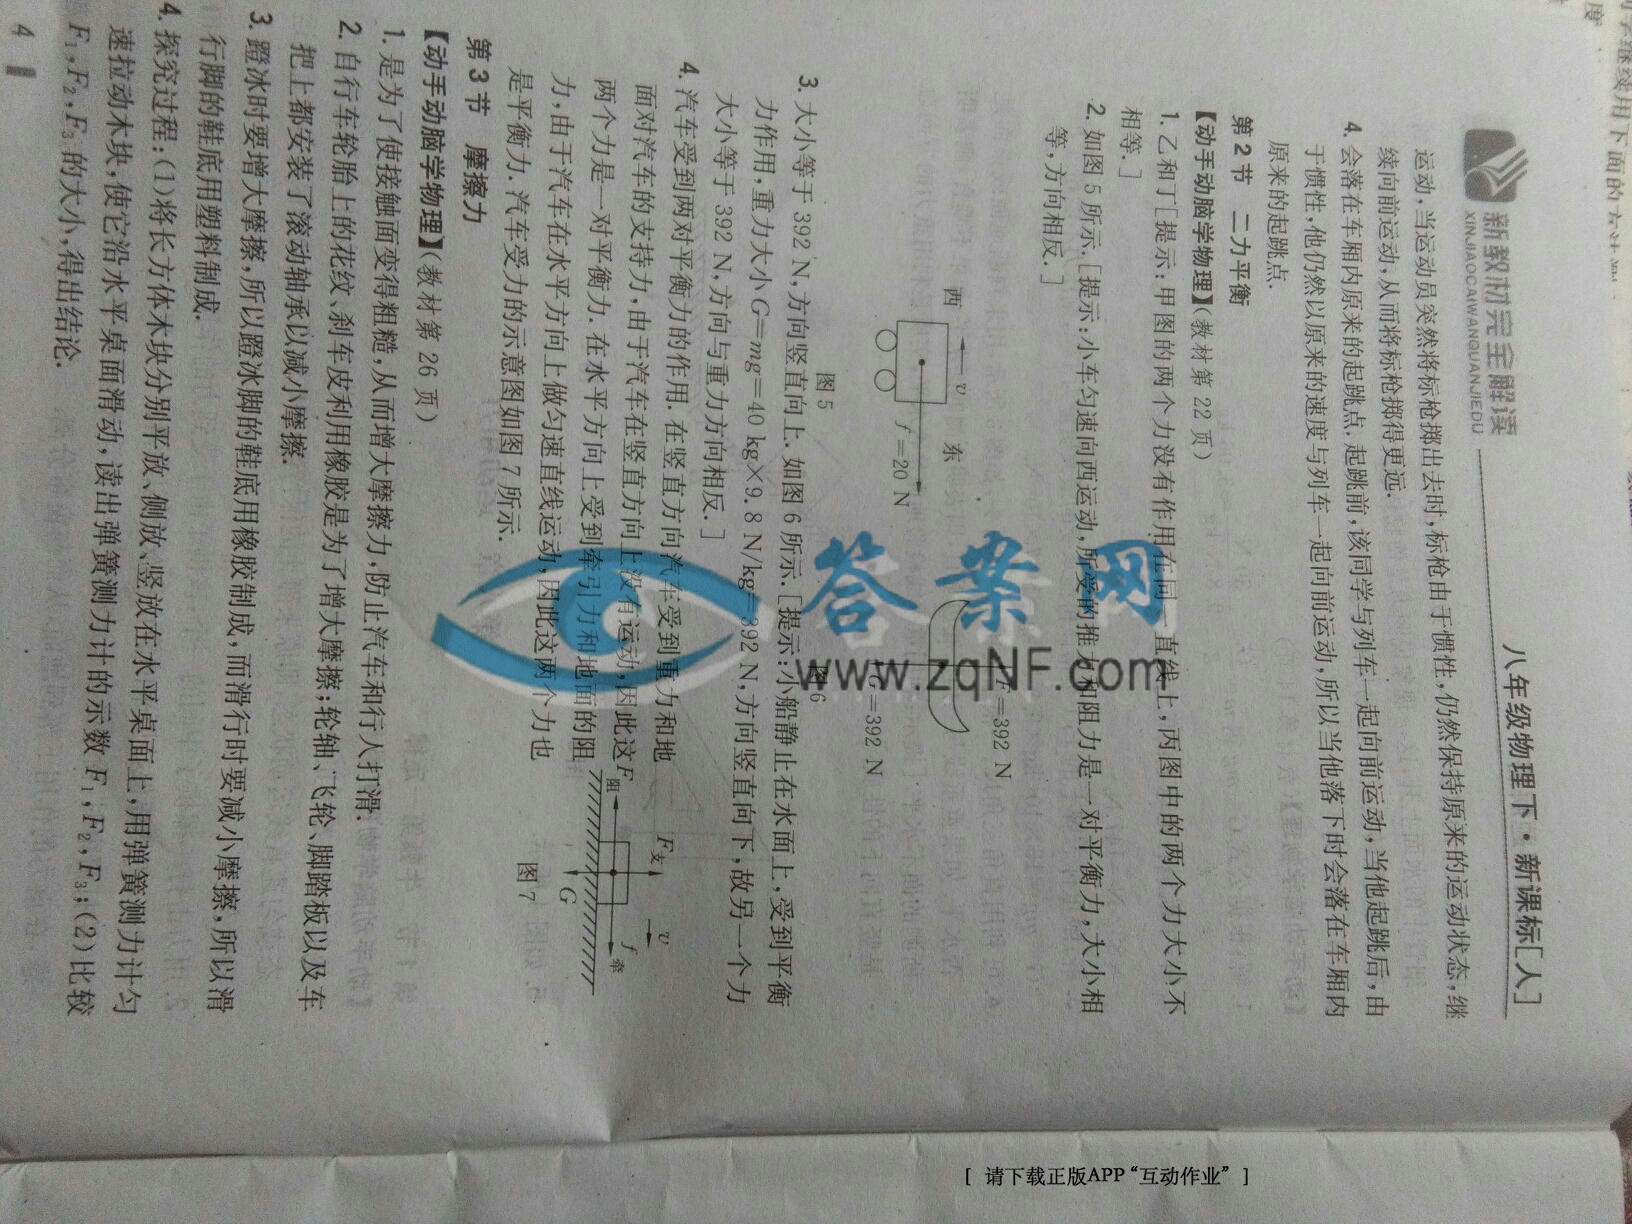 新教材完全解读
XINJIAOCAIWANQUANJIEDU
八年级物理下·新课标[人]
运动,当运动员突然将标枪掷出去时,标枪由于惯性,仍然保持原来的运动状态,继
续向前运动,从而将标枪掷得更远.
4. 会落在车厢内原来的起跳点. 起跳前,该同学与列车一起向前运动,当他起跳后,由
于惯性,他仍然以原来的速度与列车一起向前运动,所以当他落下时会落在车厢内
原来的起跳点.
第2节 二力平衡
【动手动脑学物理】(教材第 22 页)
1. 乙和丁[提示:甲图的两个力没有作用在同一直线上,丙图中的两个力大小不
相等.]
2. 如图 5 所示.[提示:小车匀速向西运动,所受的推力和阻力是一对平衡力,大小相
等,方向相反.]
西
v
东
f=20 N
图5
F=392 N
G=392 N
图6
3. 大小等于 392 N,方向竖直向上. 如图 6 所示.[提示:小船静止在水面上,受到平衡
力作用,重力大小 G=mg=40 kg×9.8 N/kg=392 N,方向竖直向下,故另一个力
大小等于 392 N,方向与重力方向相反.]
4. 汽车受到两对平衡力的作用. 在竖直方向汽车受到重力和地
面对汽车的支持力,由于汽车在竖直方向上没有运动,因此这
两个力是一对平衡力. 在水平方向上受到牵引力和地面的阻
力,由于汽车在水平方向上做匀速直线运动,因此这两个力也
是平衡力. 汽车受力的示意图如图 7 所示.
F支
v
F阻
f牵
G
图7
第3节 摩擦力
【动手动脑学物理】(教材第 26 页)
1. 是为了使接触面变得粗糙,从而增大摩擦力,防止汽车和行人打滑.
2. 自行车轮胎上的花纹、刹车皮利用橡胶是为了增大摩擦;轮轴、飞轮、脚踏板以及车
把上都安装了滚动轴承以减小摩擦.
3. 蹬冰时要增大摩擦,所以蹬冰脚的鞋底用橡胶制成,而滑行时要减小摩擦,所以滑
行脚的鞋底用塑料制成.
4. 探究过程:(1)将长方体木块分别平放、侧放、竖放在水平桌面上,用弹簧测力计匀
速拉动木块,使它沿水平桌面滑动,读出弹簧测力计的示数 F₁,F₂,F₃;(2)比较
F₁,F₂,F₃ 的大小,得出结论.
4
答案网
www.zqNF.com
[ 请下载正版APP“互动作业” ]